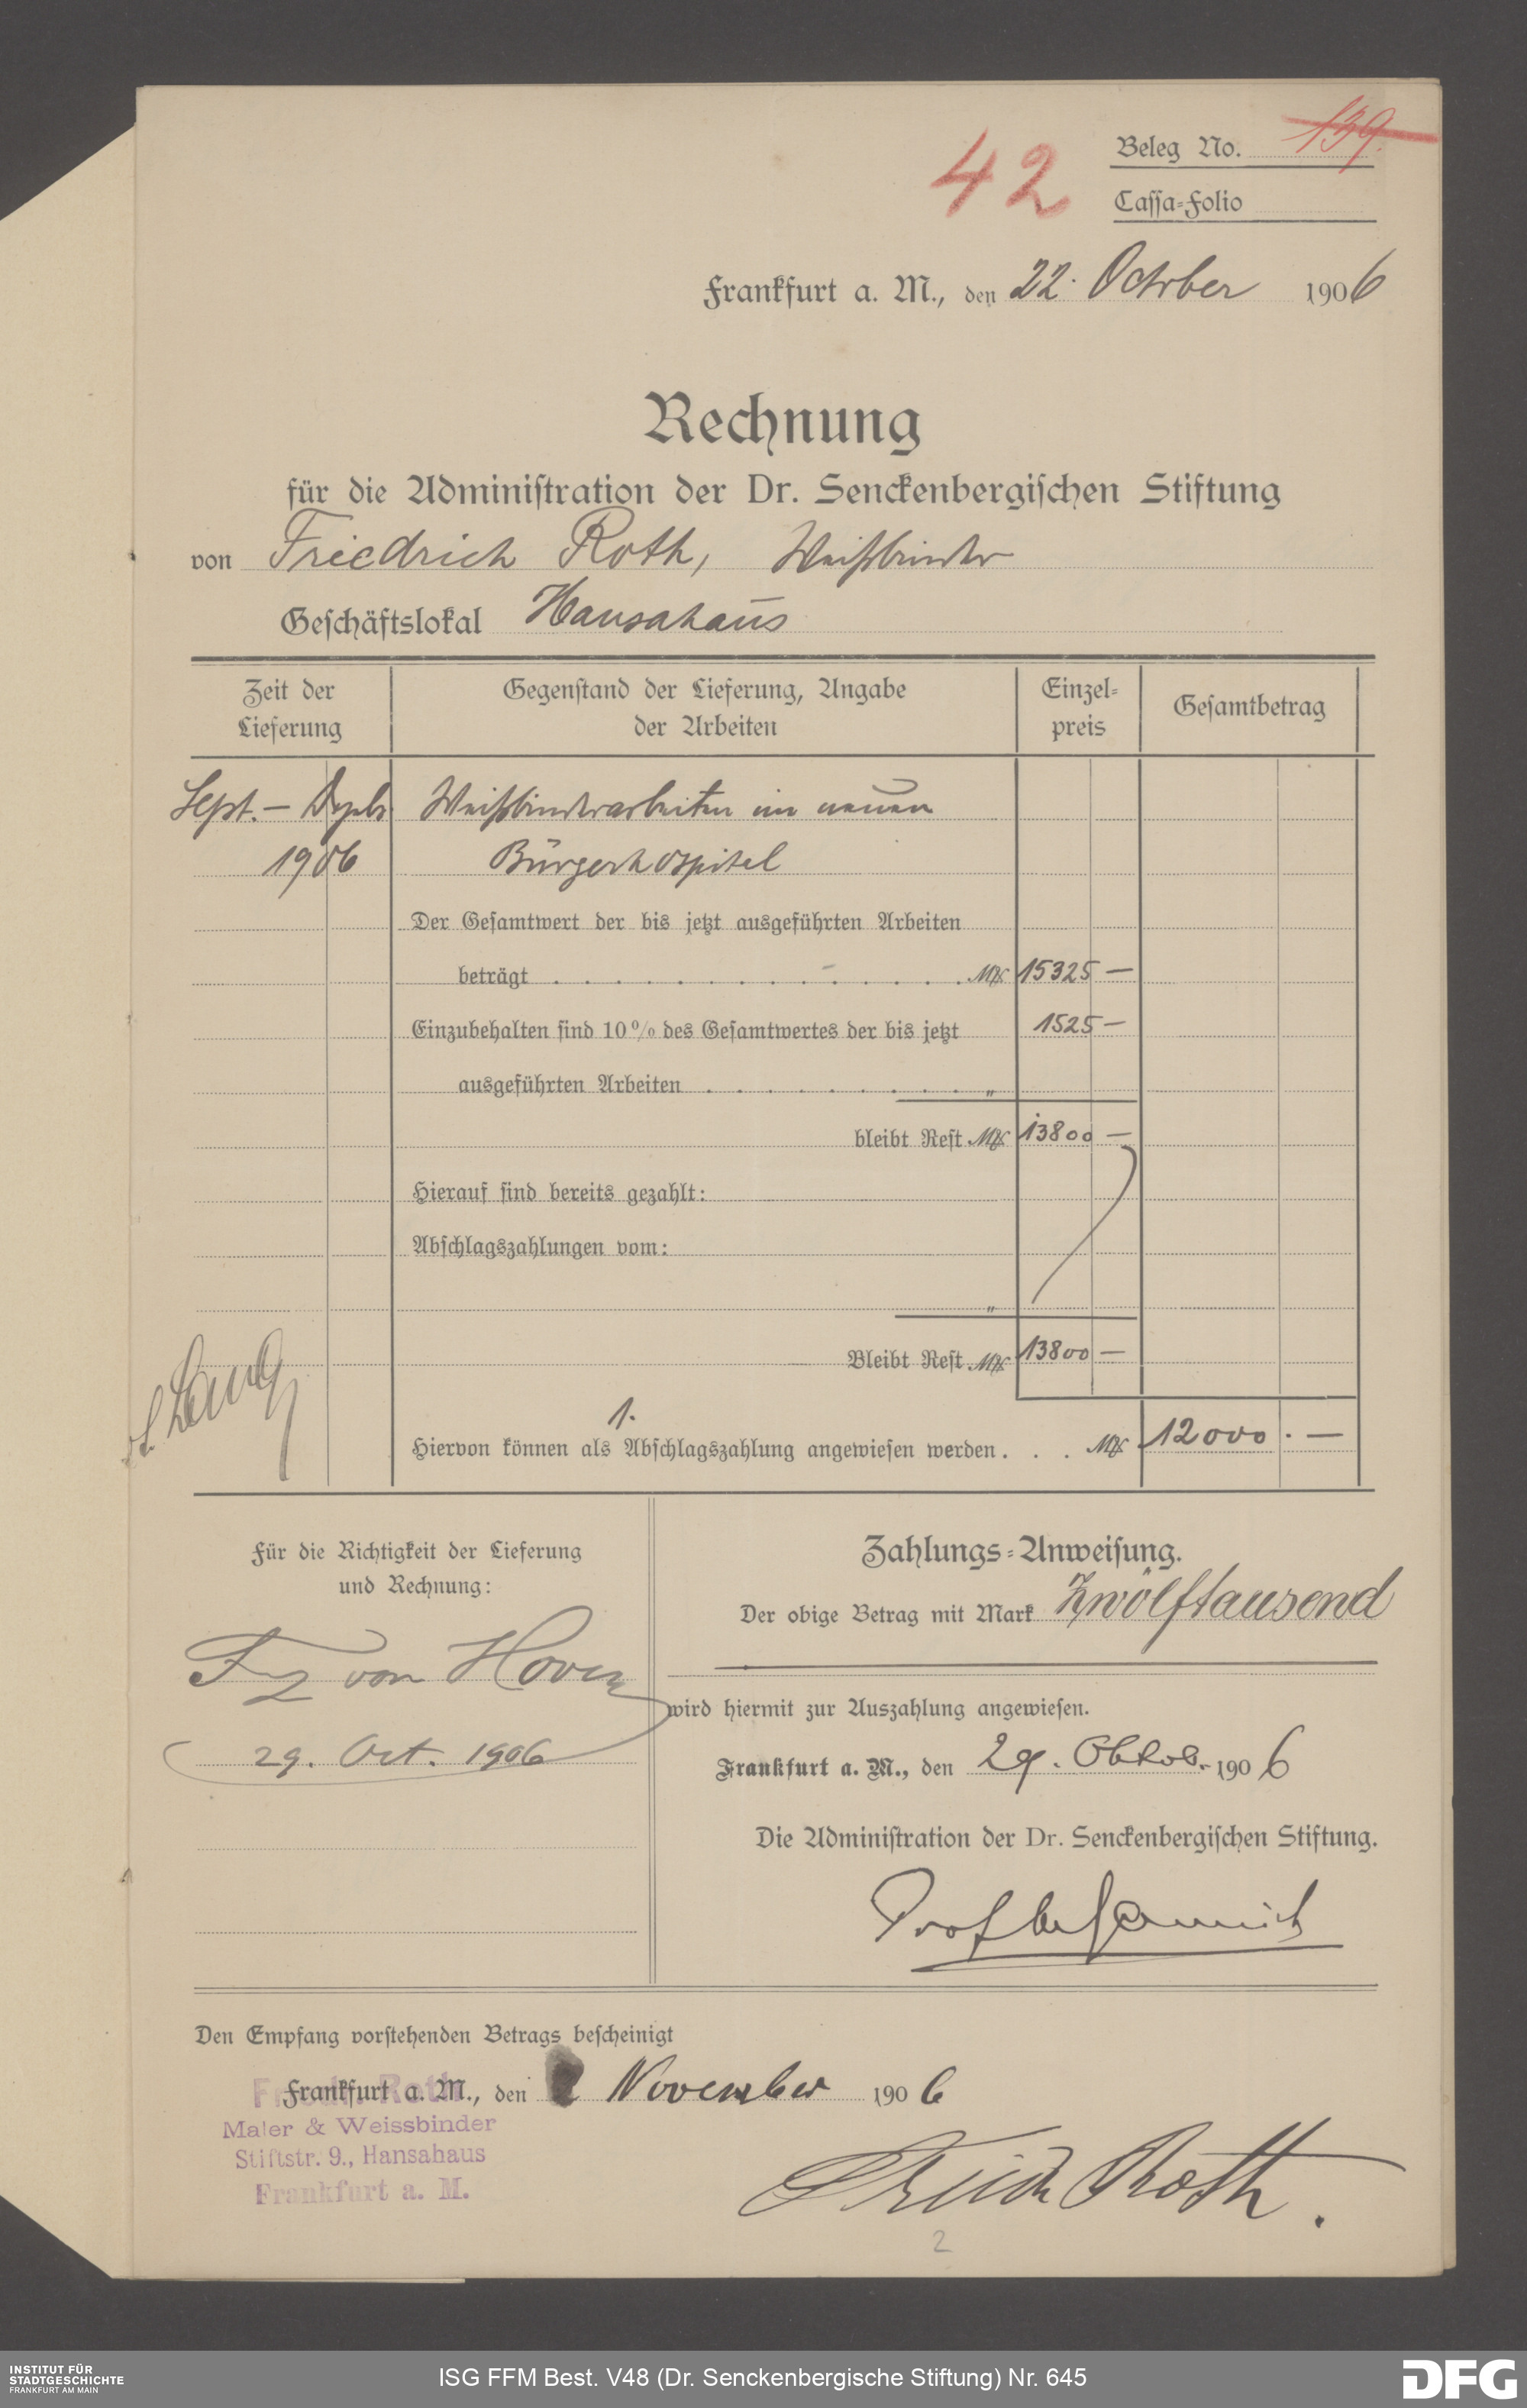 42
Beleg No. 139.
Cassa-Folio
Frankfurt a. M., den 22. October 1906
Rechnung
für die Administration der Dr. Senckenbergischen Stiftung
von Friedrich Roth, Weißbinder
Geschäftslokal Hansahaus
Zeit der Lieferung
Gegenstand der Lieferung, Angabe der Arbeiten
Einzel-preis
Gesamtbetrag
Sept. – Weißbinderarbeiten im neuen
1906 Bürgerhospital
Der Gesamtwert der bis jetzt ausgeführten Arbeiten
beträgt . . . . . . . . . . . . . . Mk 15325 —
Einzubehalten sind 10% des Gesamtwertes der bis jetzt 1525 —
ausgeführten Arbeiten . . . . . . . . . "
bleibt Rest Mk 13800 —
Hierauf sind bereits gezahlt:
Abschlagszahlungen vom:
"
Bleibt Rest Mk 13800 —
1.
Hiervon können als Abschlagszahlung angewiesen werden . . . Mk 12000 . —
Für die Richtigkeit der Lieferung
und Rechnung:
Frz von Hoven
29. Oct. 1906
Zahlungs-Anweisung.
Der obige Betrag mit Mark Zwölftausend
wird hiermit zur Auszahlung angewiesen.
Frankfurt a. M., den 29. Oktob. 1906
Die Administration der Dr. Senckenbergischen Stiftung.
Prof
Den Empfang vorstehenden Betrags bescheinigt
Frankfurt a. M., den 2 November 1906
Friedr. Roth
Maler & Weissbinder
Stiftstr. 9., Hansahaus
Frankfurt a. M.
Friedr Roth.
2
INSTITUT FÜR
STADTGESCHICHTE
FRANKFURT AM MAIN
ISG FFM Best. V48 (Dr. Senckenbergische Stiftung) Nr. 645
DFG